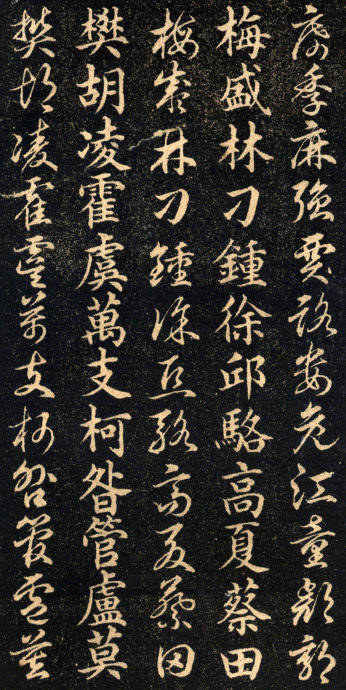 席季麻強賈路婁危江童顏郭
梅盛林刁鍾徐邱駱高夏蔡田
梅盛林刁鍾徐丘駱高夏蔡田
樊胡凌霍虞萬支柯昝管盧莫
樊胡凌霍虞萬支柯昝管盧莫